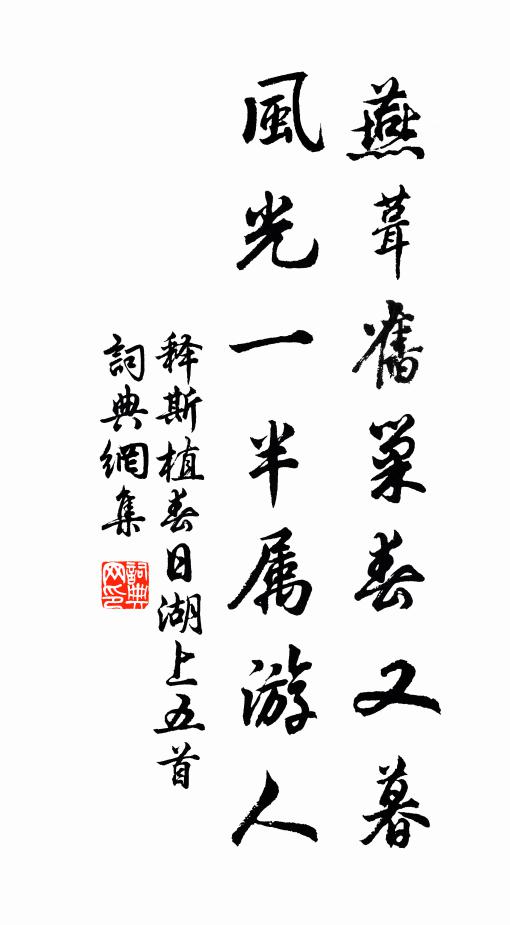 燕葺舊巢春又暮
風光一半属游人
释斯植春日湖上五首
詞典網集
詞典网印